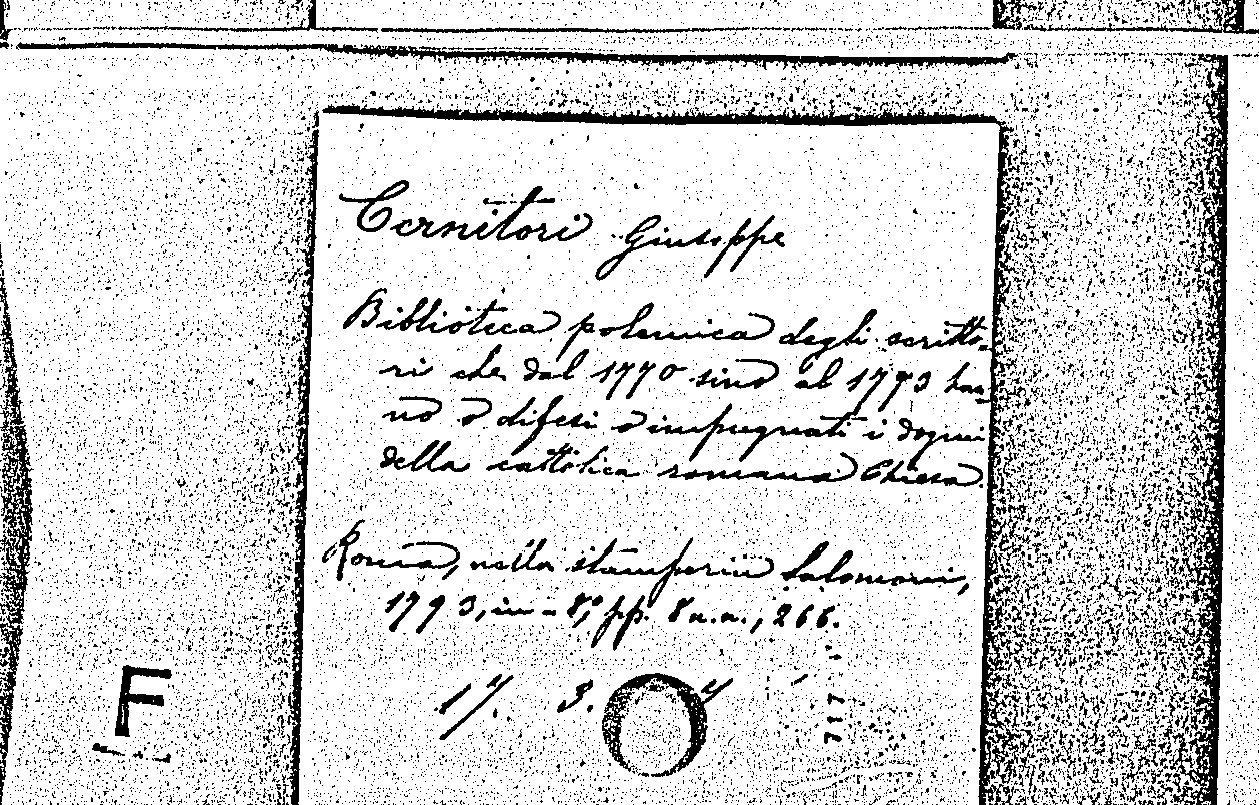 Cernitori Giuseppe
Biblioteca polemica degli scritto-
ri che dal 1770 sino al 1793 han-
no o difesi o impugnati i dogmi
della cattolica romana Chiesa.
Roma, nella stamperia Salomoni,
1793, in-8.º, pp. 8 n.n., 266.
17. 3.
717
F